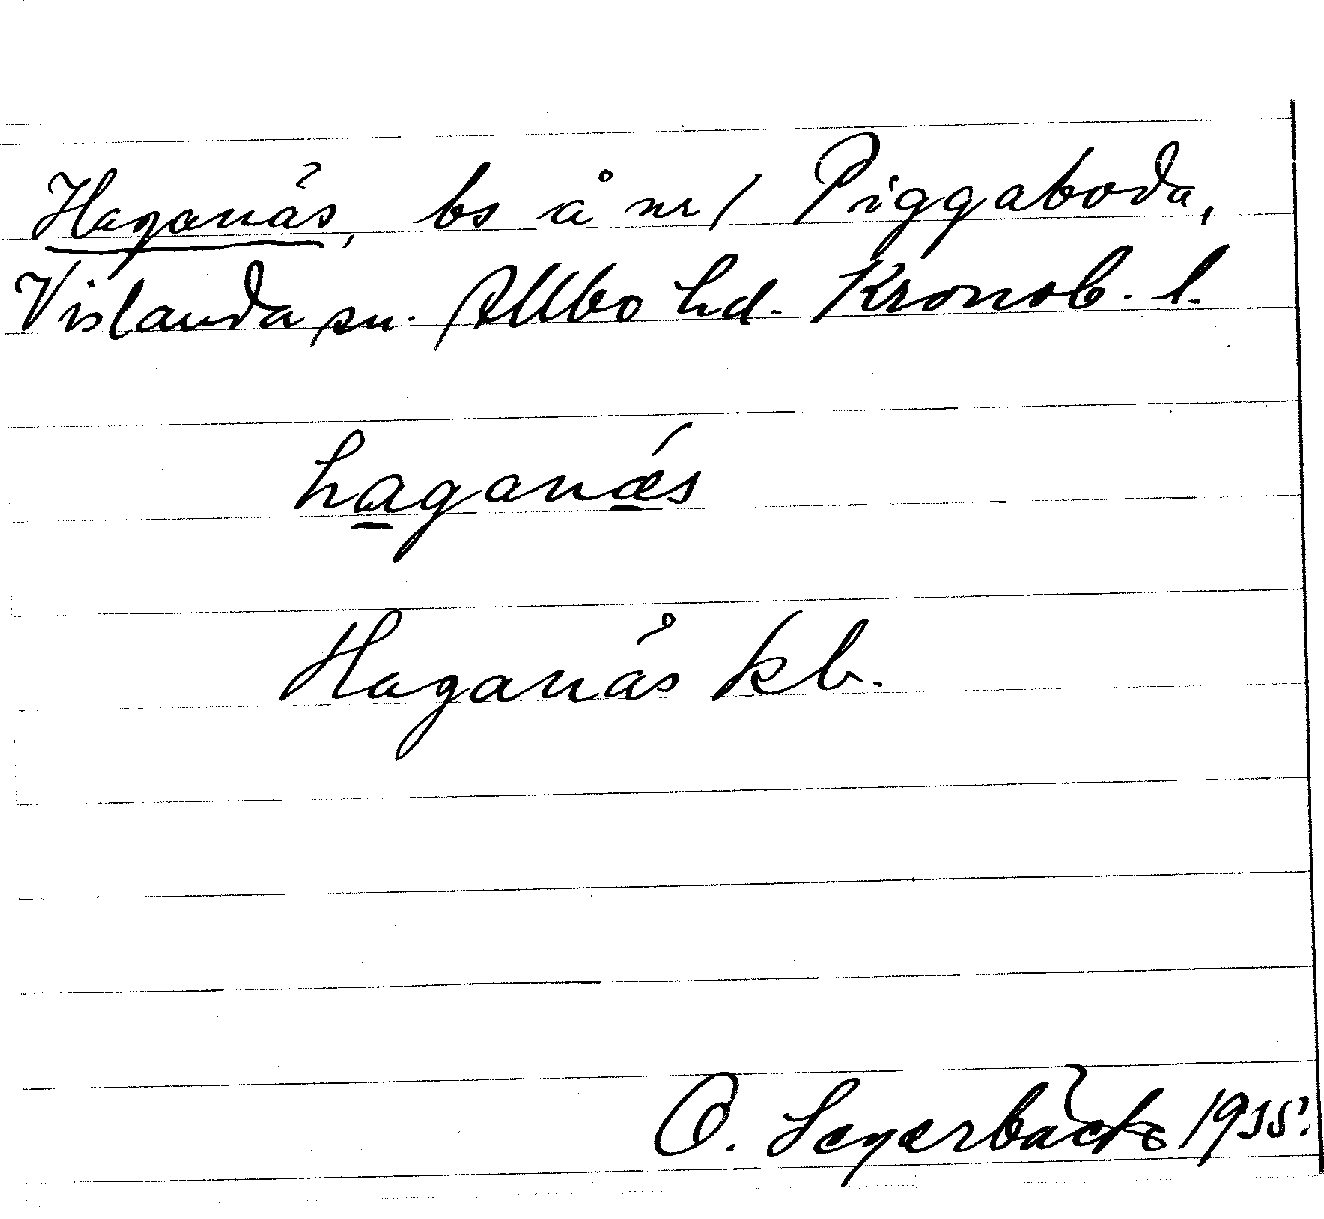 Haganäs, bs å nr 1 Piggaboda,
Vislanda sn. Allbo hd. Kronob. l.
haganæ´s
Haganäs kb.
O. Segerbäck 1935.